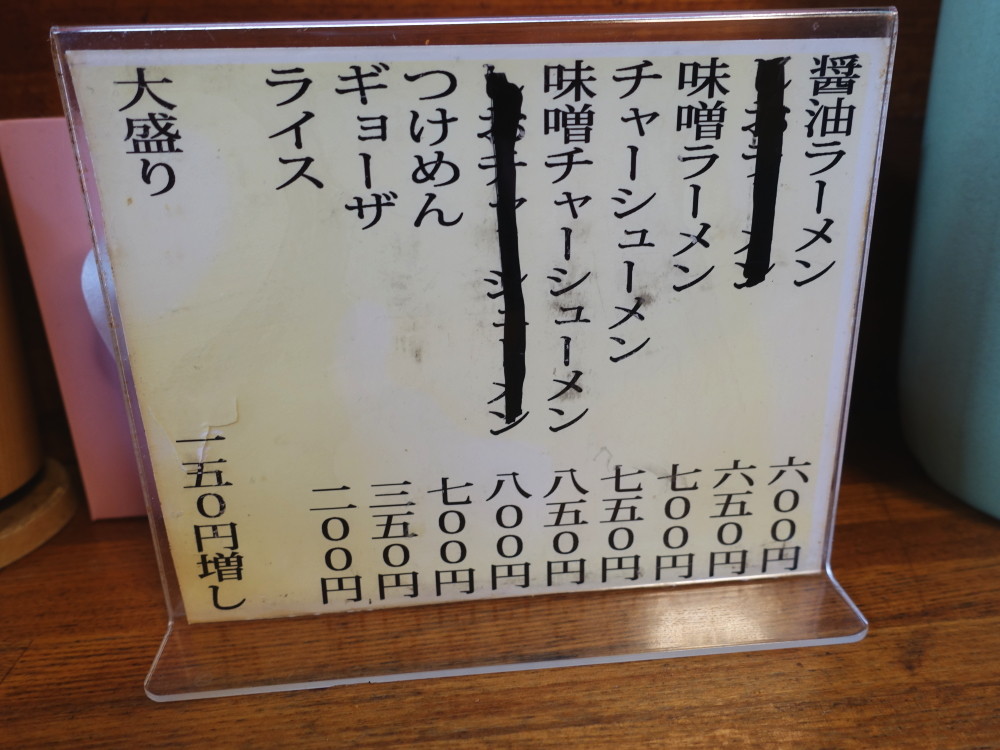 醤油ラーメン 六〇〇円
六五〇円
味噌ラーメン 七〇〇円
チャーシューメン 七五〇円
味噌チャーシューメン 八五〇円
八〇〇円
つけめん 七〇〇円
ギョーザ 三五〇円
ライス 二〇〇円
大盛り 一五〇円増し